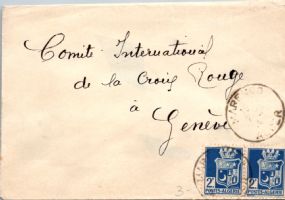 Comité International
de la Croix Rouge
à
Genève
2F 2F
POSTES-ALGERIE POSTES-ALGERIE